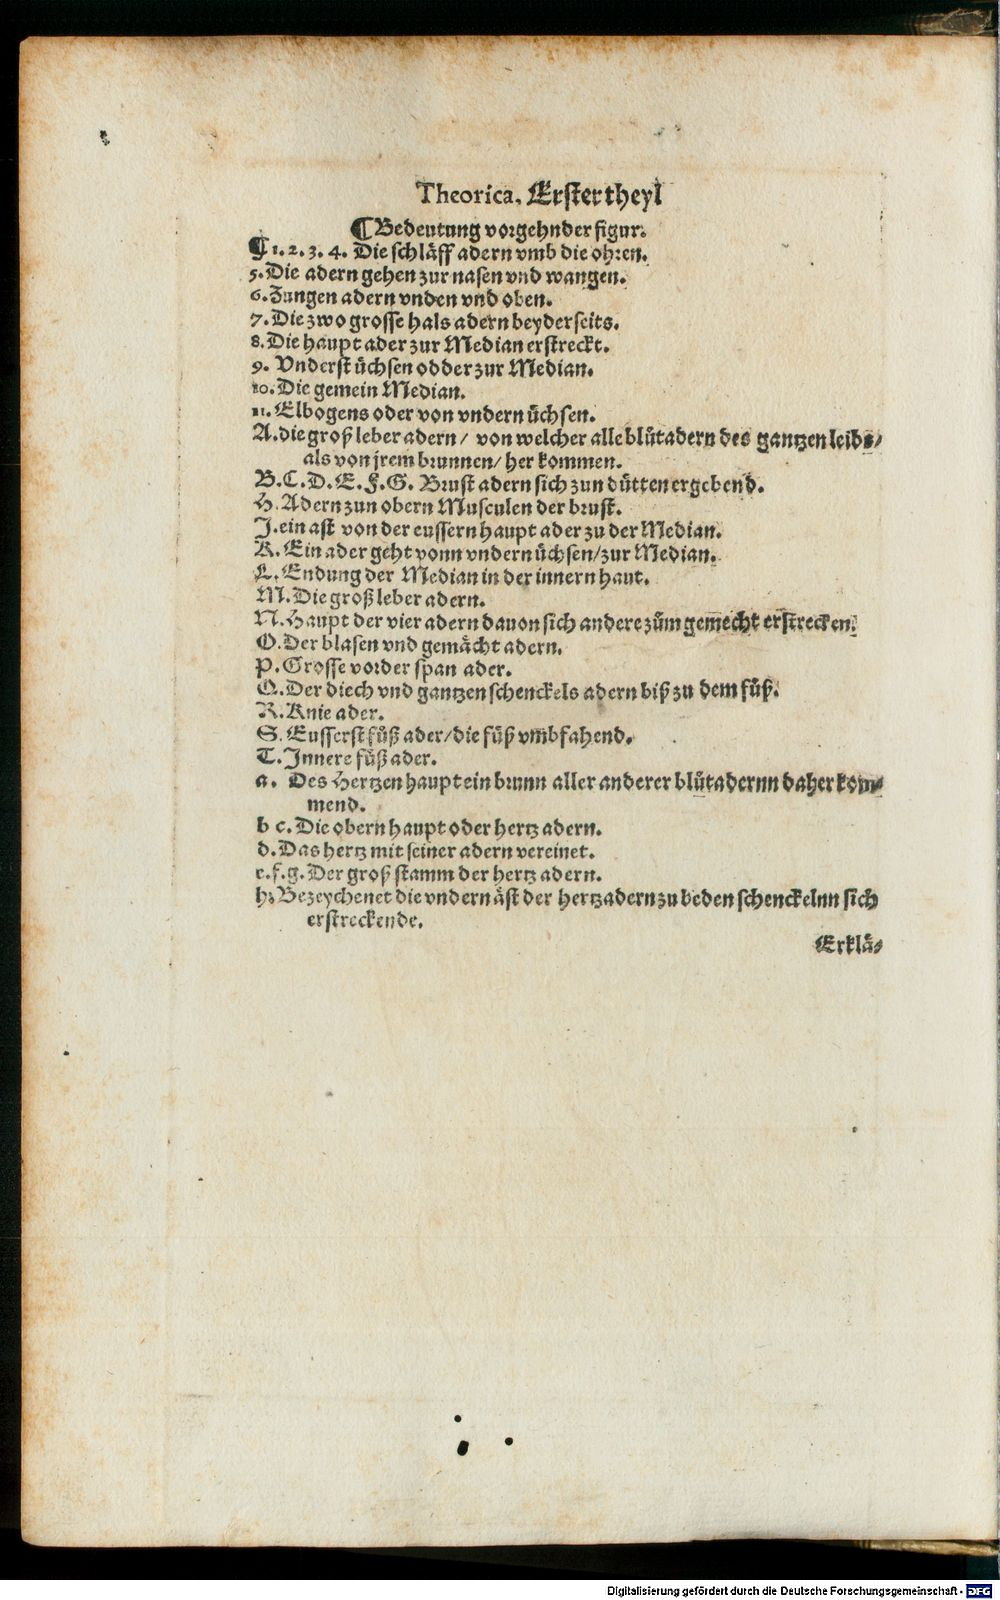 Theorica, Erster theyl
¶ Bedeutung vorgehnder figur.
¶ 1. 2. 3. 4. Die schläff adern vmb die ohren.
5. Die adern gehen zur nasen vnd wangen.
6. Zungen adern vnden vnd oben.
7. Die zwo grosse hals adern beyderseits.
8. Die haupt ader zur Median erstreckt.
9. Vnderst üchsen odder zur Median.
10. Die gemein Median.
11. Elbogens oder von vndern üchsen.
A. die groß leber adern / von welcher alle blůtadern des gantzen leibs/
als von jrem brunnen/ her kommen.
B. C. D. E. F. G. Brust adern sich zun dütten ergebend.
H. Adern zun obern Musculen der brust.
J. ein ast von der eussern haupt ader zu der Median.
K. Ein ader geht vonn vndern üchsen/zur Median.
L. Endung der Median in der innern haut.
M. Die groß leber adern.
N. Haupt der vier adern dauon sich andere zům gemecht erstrecken.
O. Der blasen vnd gemächt adern.
P. Grosse vorder span ader.
Q. Der diech vnd gantzen schenckels adern biß zu dem fůß.
R. Knie ader.
S. Eusserst fůß ader/die fůß vmbfahend.
T. Innere fůß ader.
a. Des Hertzen haupt ein brunn aller anderer blůtadernn daher kom⸗
mend.
b c. Die obern haupt oder hertz adern.
d. Das hertz mit seiner adern vereinet.
e. f. g. Der groß stamm der hertz adern.
h. Bezeychenet die vndern äst der hertzadern zu beden schenckelnn sich
erstreckende.
Erklä⸗
Digitalisierung gefördert durch die Deutsche Forschungsgemeinschaft - DFG